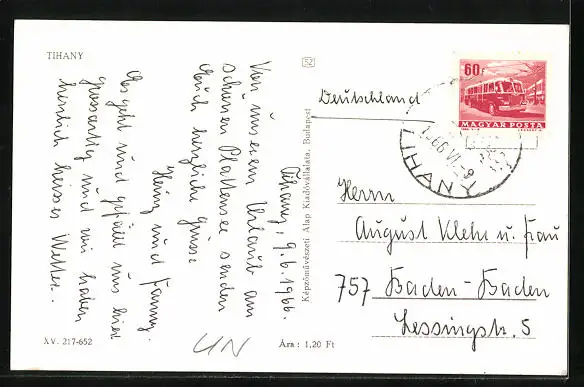 TIHANY
52
Tihany, 9.6.1966.
Von unserem Urlaub am
schönen Plattensee senden
Euch herzliche Grüsse
Heinz und Fanny.
Es geht und gefällt uns hier
grossartig und wir haben
herrlich heisses Wetter.
XV. 217-652
UN
Ára: 1,20 Ft
Képzőművészeti Alap Kiadóvállalata, Budapest
60f
MAGYAR POSTA
TIHANY
Deutschland
Herrn
August Klehr u. Frau
757 Baden-Baden
Lessingstr. 5